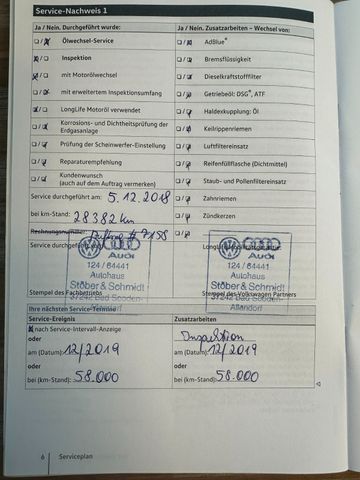 Service-Nachweis 1
Ja / Nein. Durchgeführt wurde:
Ja / Nein. Zusatzarbeiten – Wechsel von:
Ölwechsel-Service
AdBlue®
Inspektion
Bremsflüssigkeit
mit Motorölwechsel
Dieselkraftstofffilter
mit erweitertem Inspektionsumfang
Getriebeöl: DSG®, ATF
LongLife Motoröl verwendet
Haldexkupplung: Öl
Korrosions- und Dichtheitsprüfung der
Erdgasanlage
Keilrippenriemen
Prüfung der Scheinwerfer-Einstellung
Luftfiltereinsatz
Reparaturempfehlung
Reifenfüllflasche (Dichtmittel)
Kundenwunsch
(auch auf dem Auftrag vermerken)
Staub- und Pollenfiltereinsatz
Service durchgeführt am: 5.12.2018
Zahnriemen
bei km-Stand: 28382 km
Zündkerzen
Rechnungsnummer: # 7158
Service durchgeführt
Audi
124 / 64441
Autohaus
Stöber & Schmidt
37242 Bad Sooden-
Allendorf
Stempel des
Audi
124 / 64441
Autohaus
Stöber & Schmidt
37242 Bad Sooden-
Allendorf
Stempel des Volkswagen Partners
Ihre nächsten Service-Termine
Service-Ereignis
Zusatzarbeiten
nach Service-Intervall-Anzeige
Inspektion
oder
oder
am (Datum): 12/2019
am (Datum): 12/2019
oder
oder
bei (km-Stand): 58.000
bei (km-Stand): 58.000
6 Serviceplan